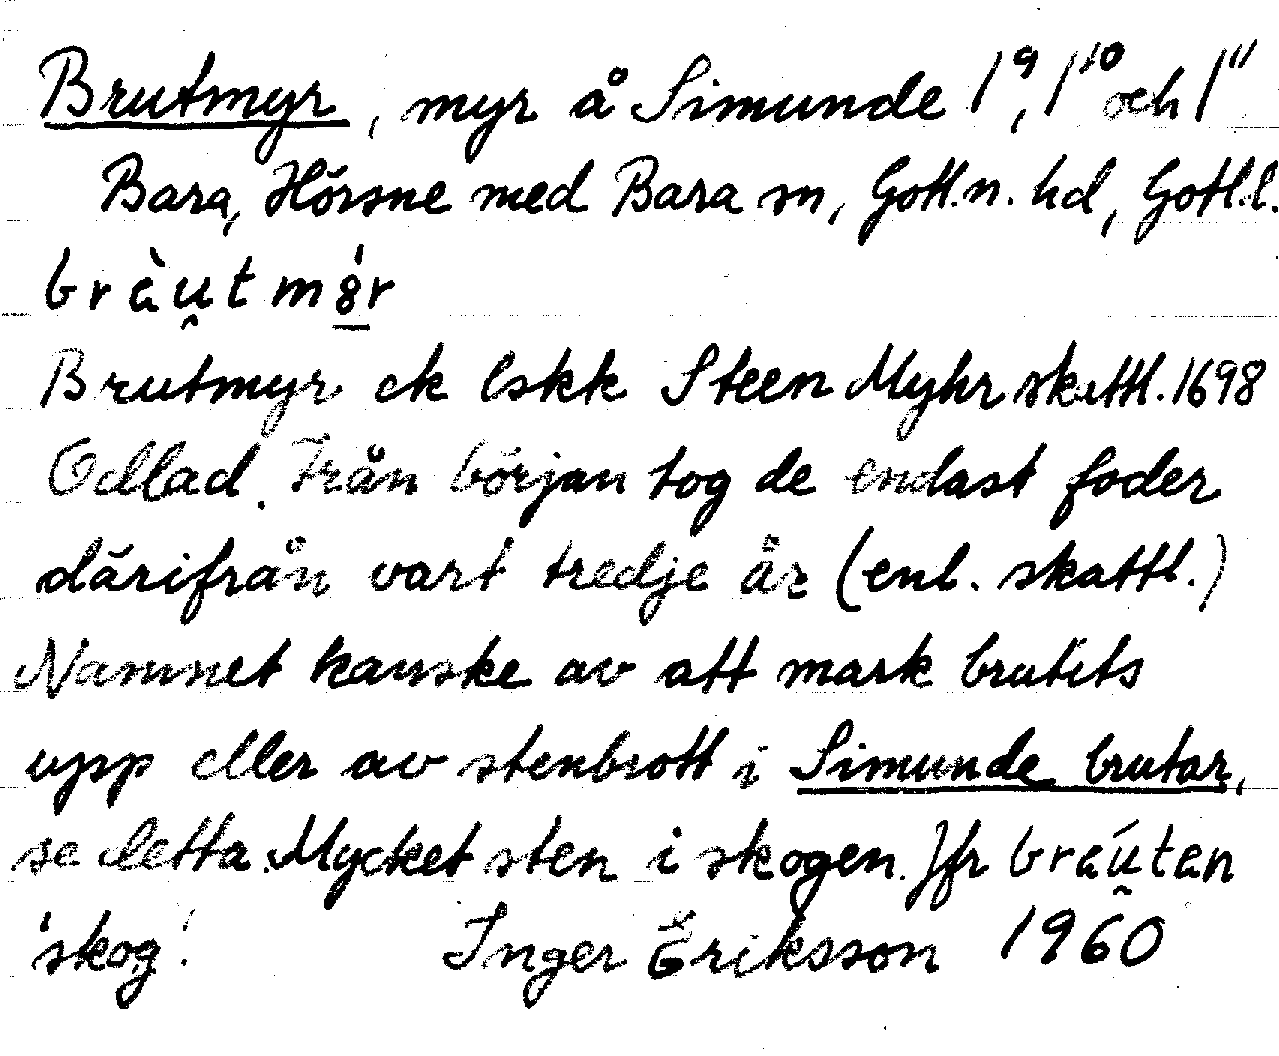 Brutmyr, myr å Simunde 1⁹, 1¹⁰ och 1¹¹
Bara, Hörsne med Bara sn, Gotl.n. hd, Gotl.l.
bràu̯tmꞌ8r
Brutmyr ek lskk Steen Myhr skattl. 1698
Odlad. Från början tog de endast foder
därifrån vart tredje år (enl. skattl.)
Namnet kanske av att mark brutits
upp eller av stenbrott i Simunde brutar,
se detta. Mycket sten i skogen. Jfr bráu̯tan
'skog'. Inger Eriksson 1960